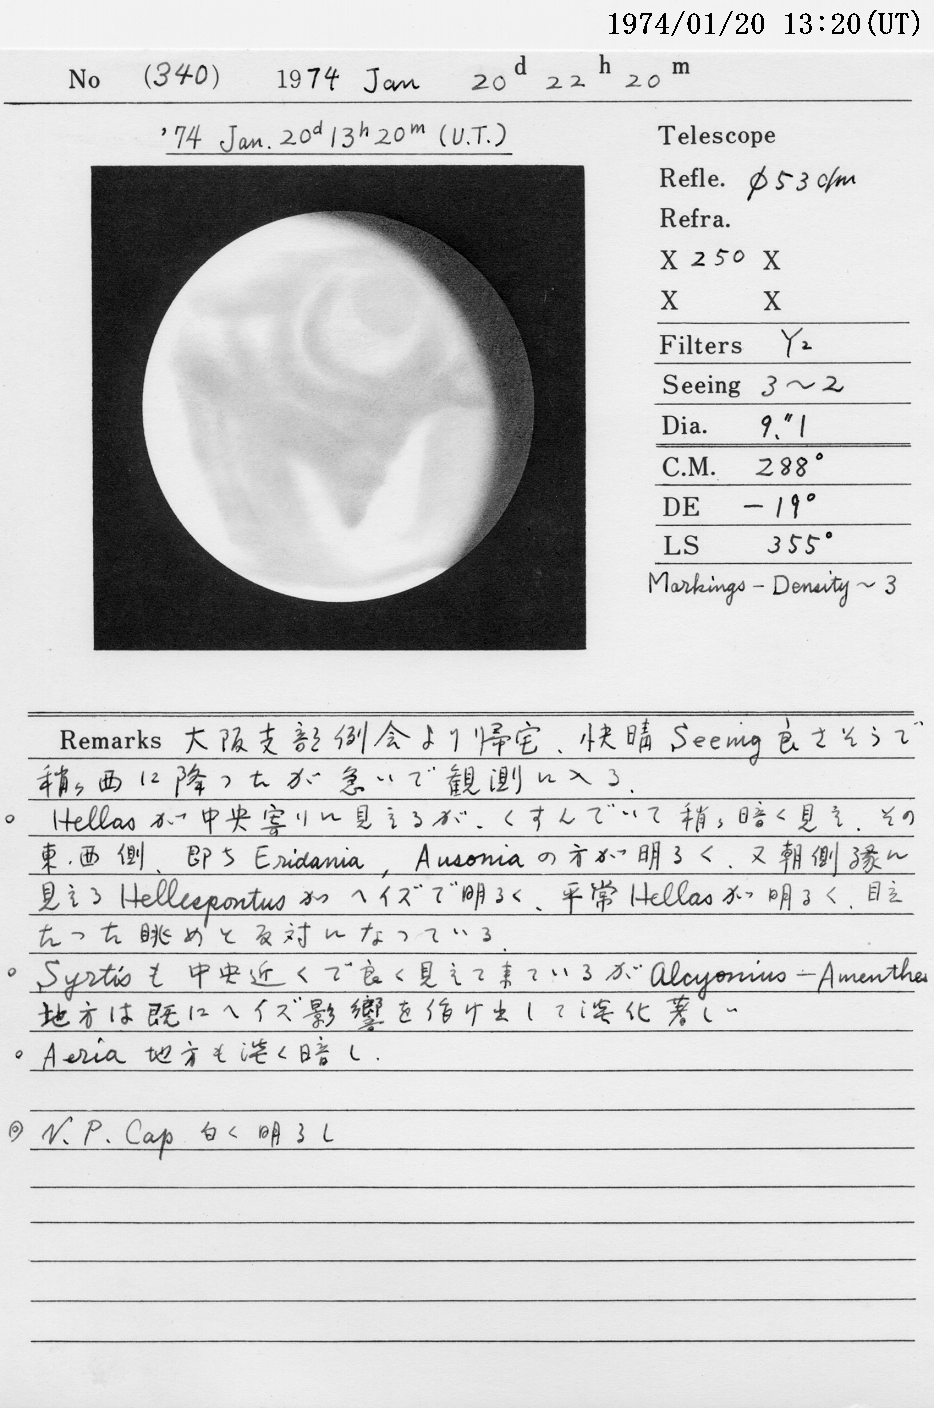 1974/01/20 13:20(UT)
No (340) 1974 Jan 20d 22h 20m
'74 Jan. 20d 13h 20m (U.T.)
Telescope
Refle. φ53 c/m
Refra.
X 250 X
X X
Filters Y2
Seeing 3~2
Dia. 9."1
C.M. 288°
DE -19°
LS 355°
Markings - Density ~ 3
Remarks 大阪支部例会より帰宅、快晴 Seeing 良さそうで
稍々西に降ったが急いで観測に入る.
○ Hellas が中央寄りに見えるが、くすんでいて稍々暗く見え、その
東,西側、即ち Eridania, Ausonia の方が明るく、又朝側縁に
見える Hellespontus がヘイズで明るく、平常 Hellas が明るく、目立
たった眺めと反対になっている.
○ Syrtis も中央近くで良く見えて来ているが Alcyonius-Amenthes
地方は既にヘイズ影響を受け出して淡化著しい
○ Aeria 地方も淡く暗し.
◎ N.P.Cap 白く明るし